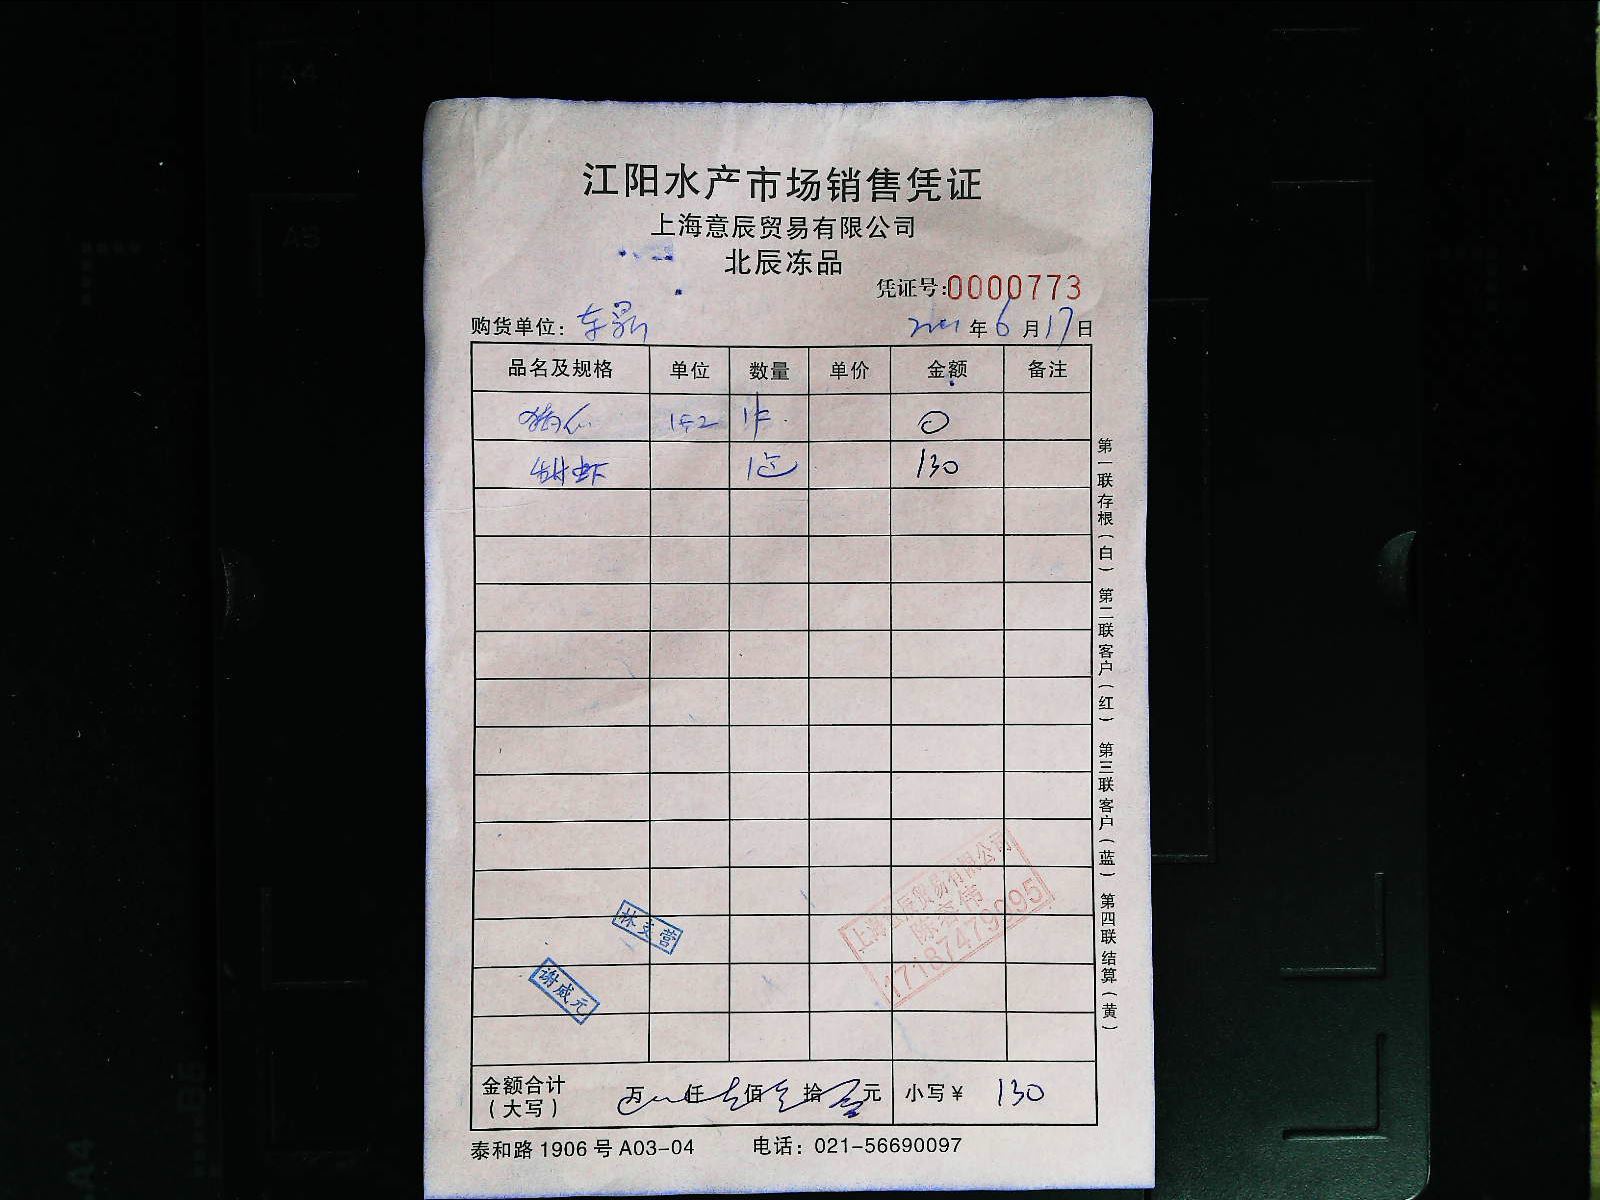 江阳水产市场销售凭证
上海意辰贸易有限公司
北辰冻品
凭证号:0000773
购货单位: 年6月17日
品名及规格 单位 数量 单价 金额 备注
0
甜虾 130
林文营
谢咸元
上海意辰贸易有限公司
17187479095
金额合计 万 仟 佰 拾 元 小写¥ 130
(大写)
泰和路1906号A03-04 电话: 021-56690097
第一联存根(白) 第二联客户(红) 第三联客户(蓝) 第四联结算(黄)